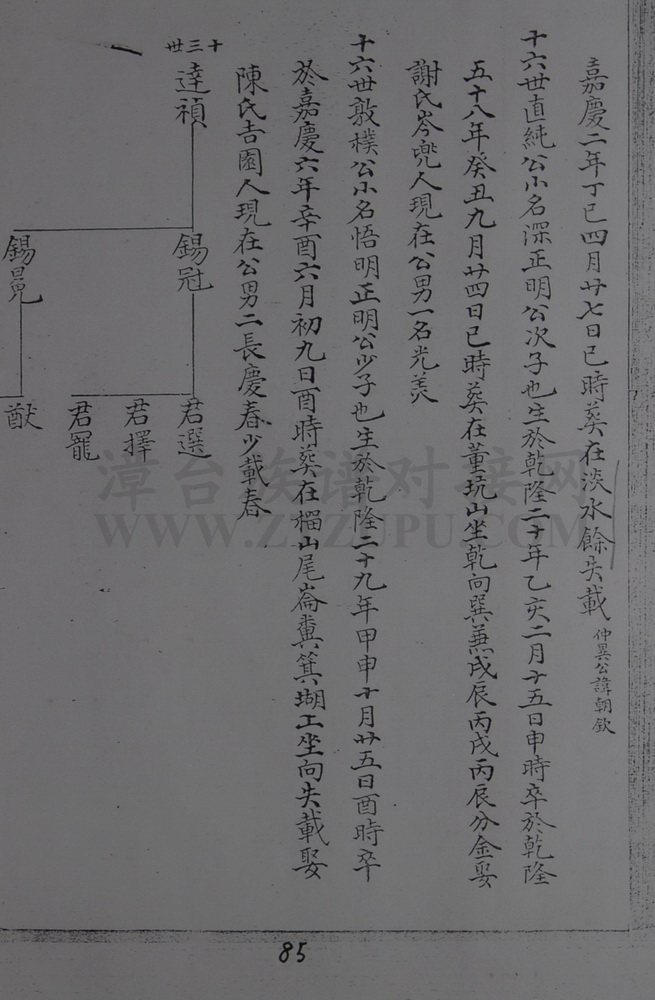 嘉慶二年丁巳四月廿七日巳時葬在淡水餘失載 仲異公諱朝欽
十六世直純公小名深正明公次子也生於乾隆二十年乙亥二月十五日申時卒於乾隆
五十八年癸丑九月廿四日巳時葬在董坑山坐乾向巽兼戌辰丙戌丙辰分金娶
謝氏岑兜人現在公男一名光羙
十六世敦樸公小名悟明正明公少子也生於乾隆二十九年甲申十月廿五日酉時卒
於嘉慶六年辛酉六月初九日酉時葬在榴山尾崙糞箕湖工坐向失載娶
陳氏吉園人現在公男二長慶春少載春
十三世
達禎
錫冠
君選
君擇
君寵
錫
猷
漳台族谱对接网
WWW.ZTZUPU.COM
85